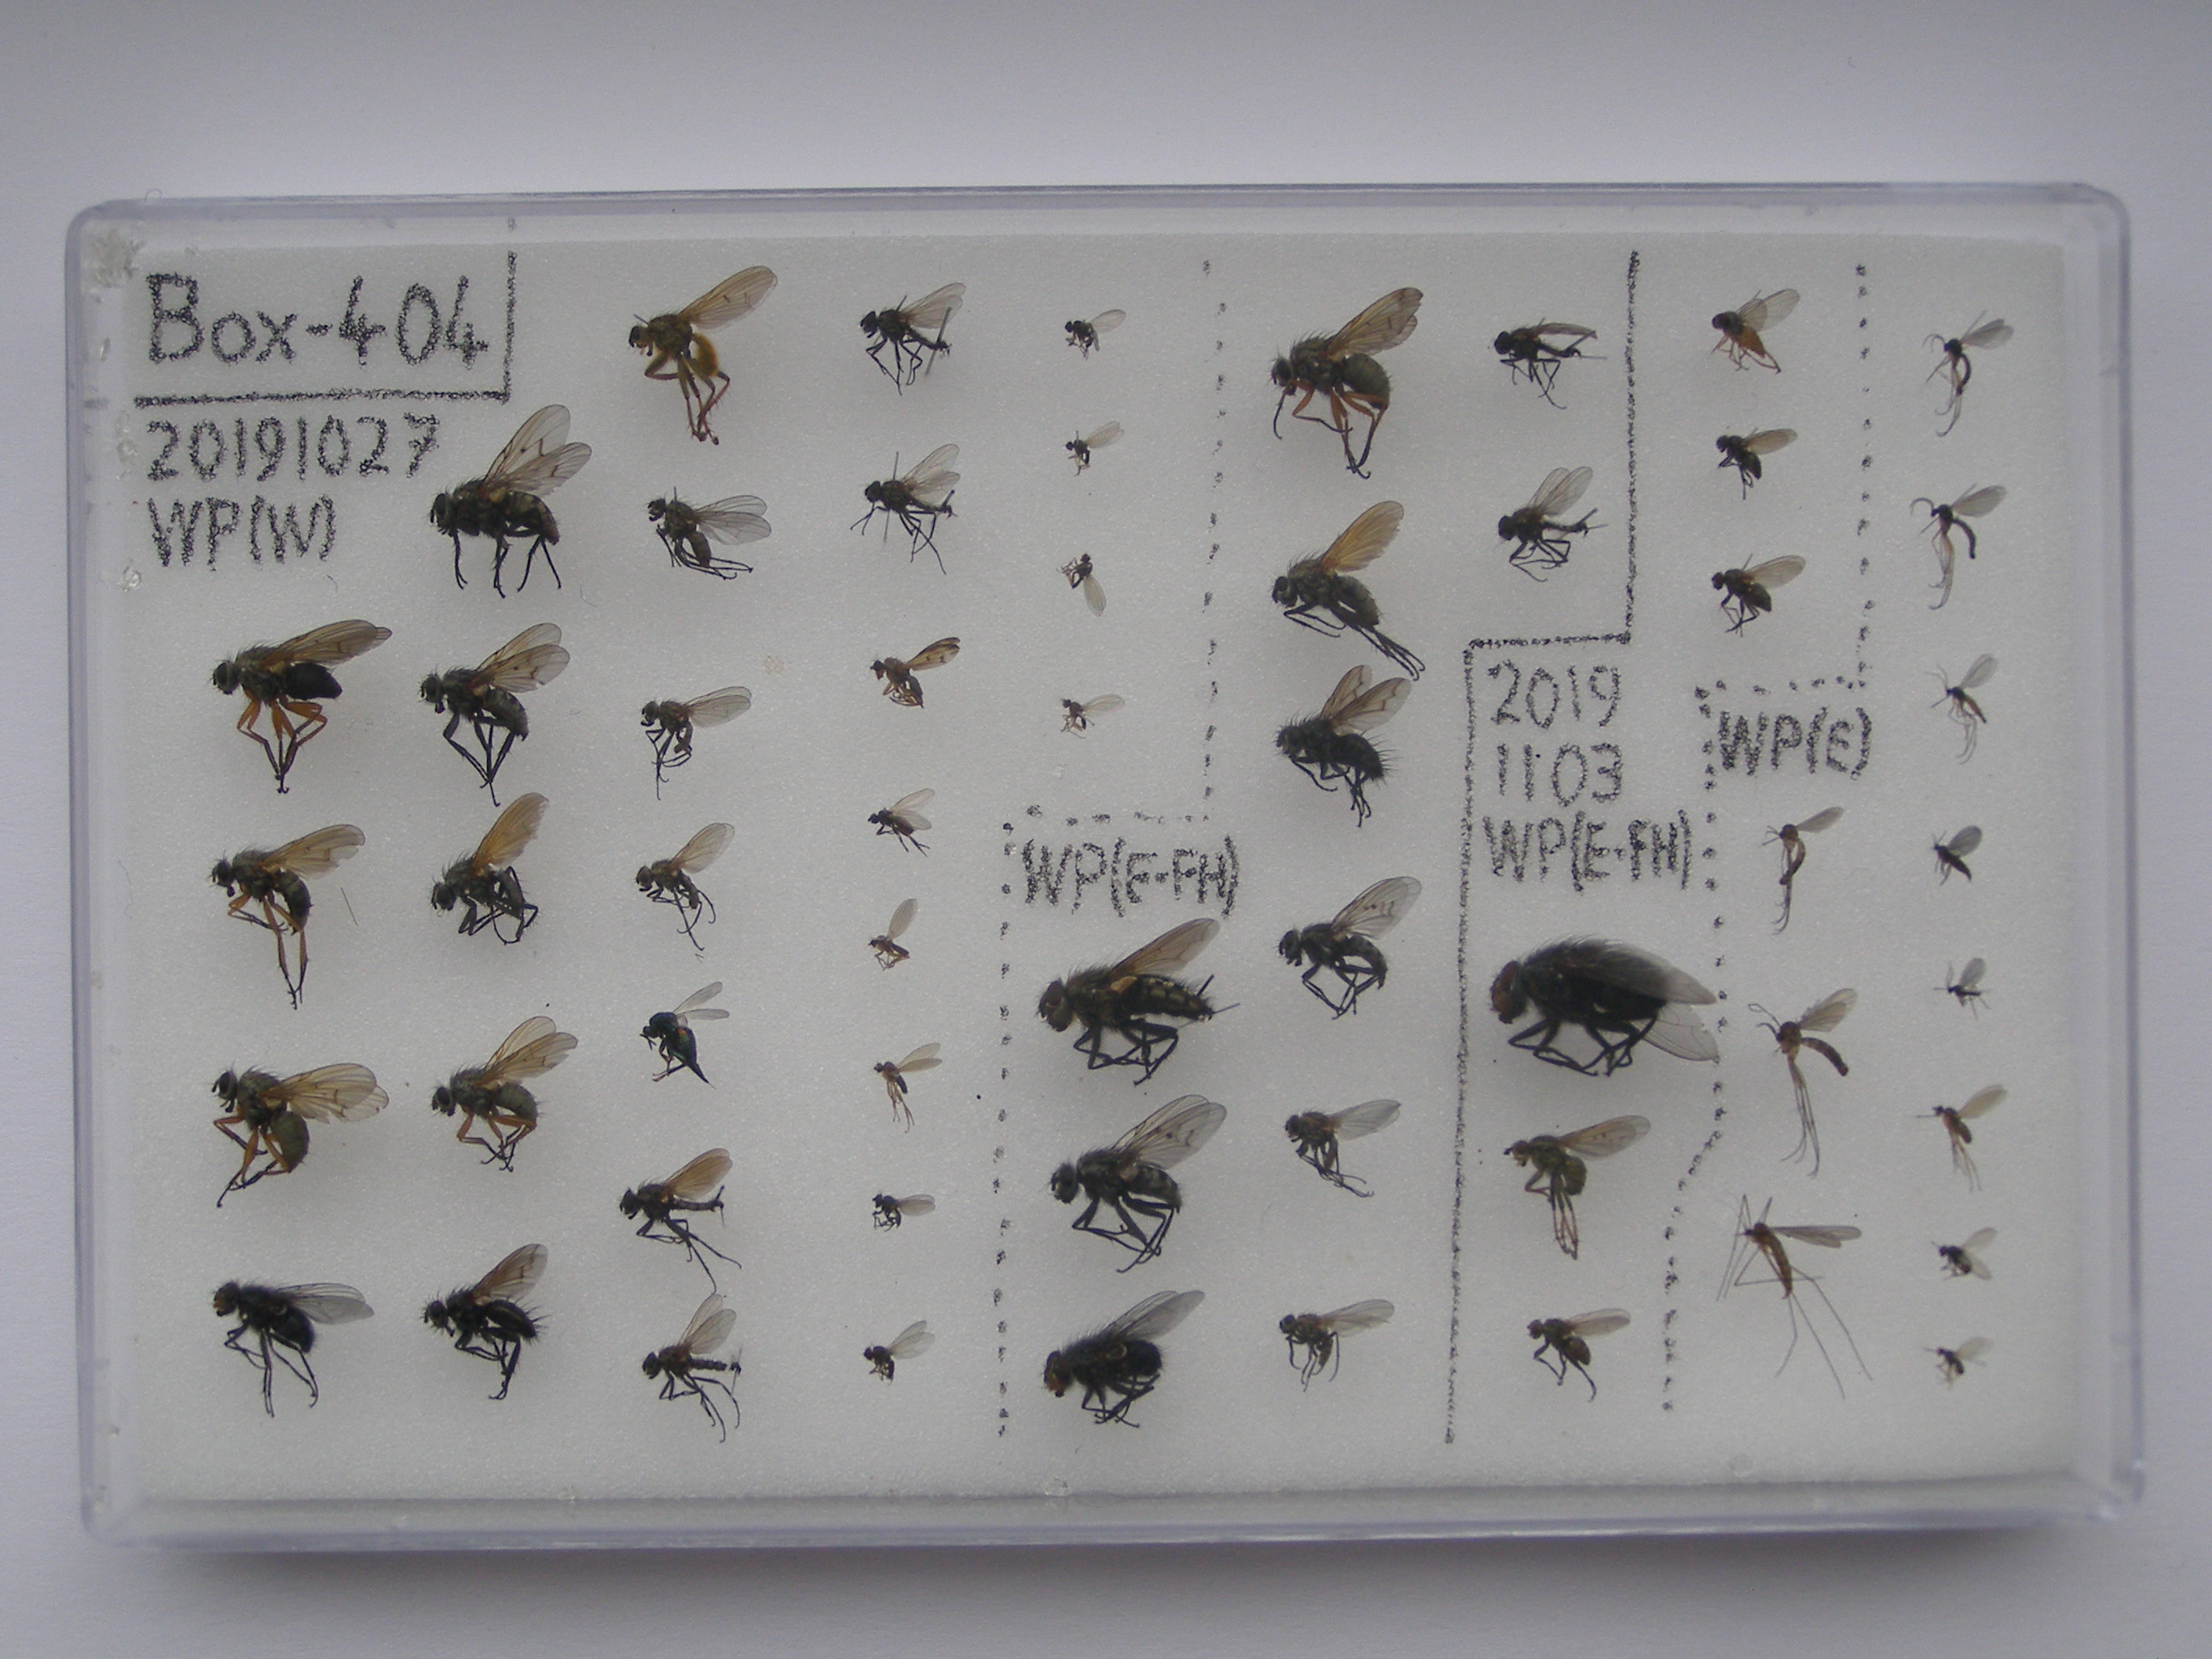 Box-404
20191027
WP(W)
WP(E-FH)
2019
1103
WP(E-FH)
WP(E)